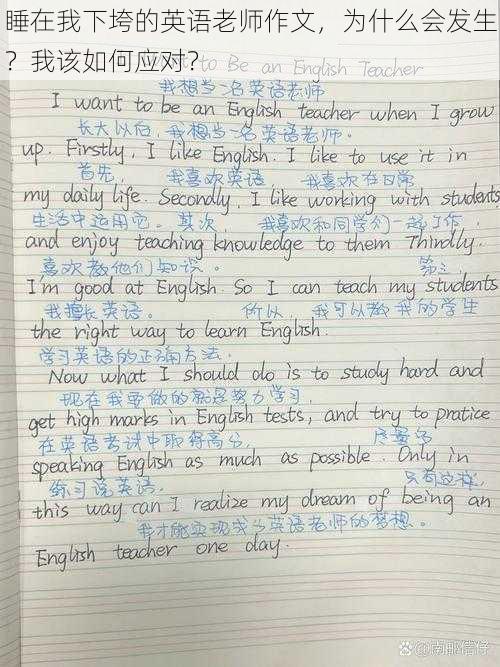 睡在我下垮的英语老师作文，为什么会发生
？我该如何应对？
to Be an English Teacher
我想当一名英语老师
I want to be an English teacher when I grow
长大以后，我想当一名英语老师。
up. Firstly, I like English. I like to use it in
首先， 我喜欢英语 我喜欢在日常
my daily life. Secondly, I like working with students
生活中运用它。其次， 我喜欢和同学们一起工作，
and enjoy teaching knowledge to them Thindly.
喜欢教他们知识。 第三，
I'm good at English. So I can teach my students
我擅长英语。 所以，我可以教我的学生
the right way to learn English.
学习英语的正确方法.
Now what I should do is to study hard and
现在我要做的就是努力学习，
get high marks in English tests, and try to pratice
在英语考试中取得高分， 尽量多
speaking English as much as possible. Only in
练习说英语. 只有这样，
this way can I realize my dream of being an
我才能实现成为英语老师的梦想。
English teacher one day.
@南那信仔